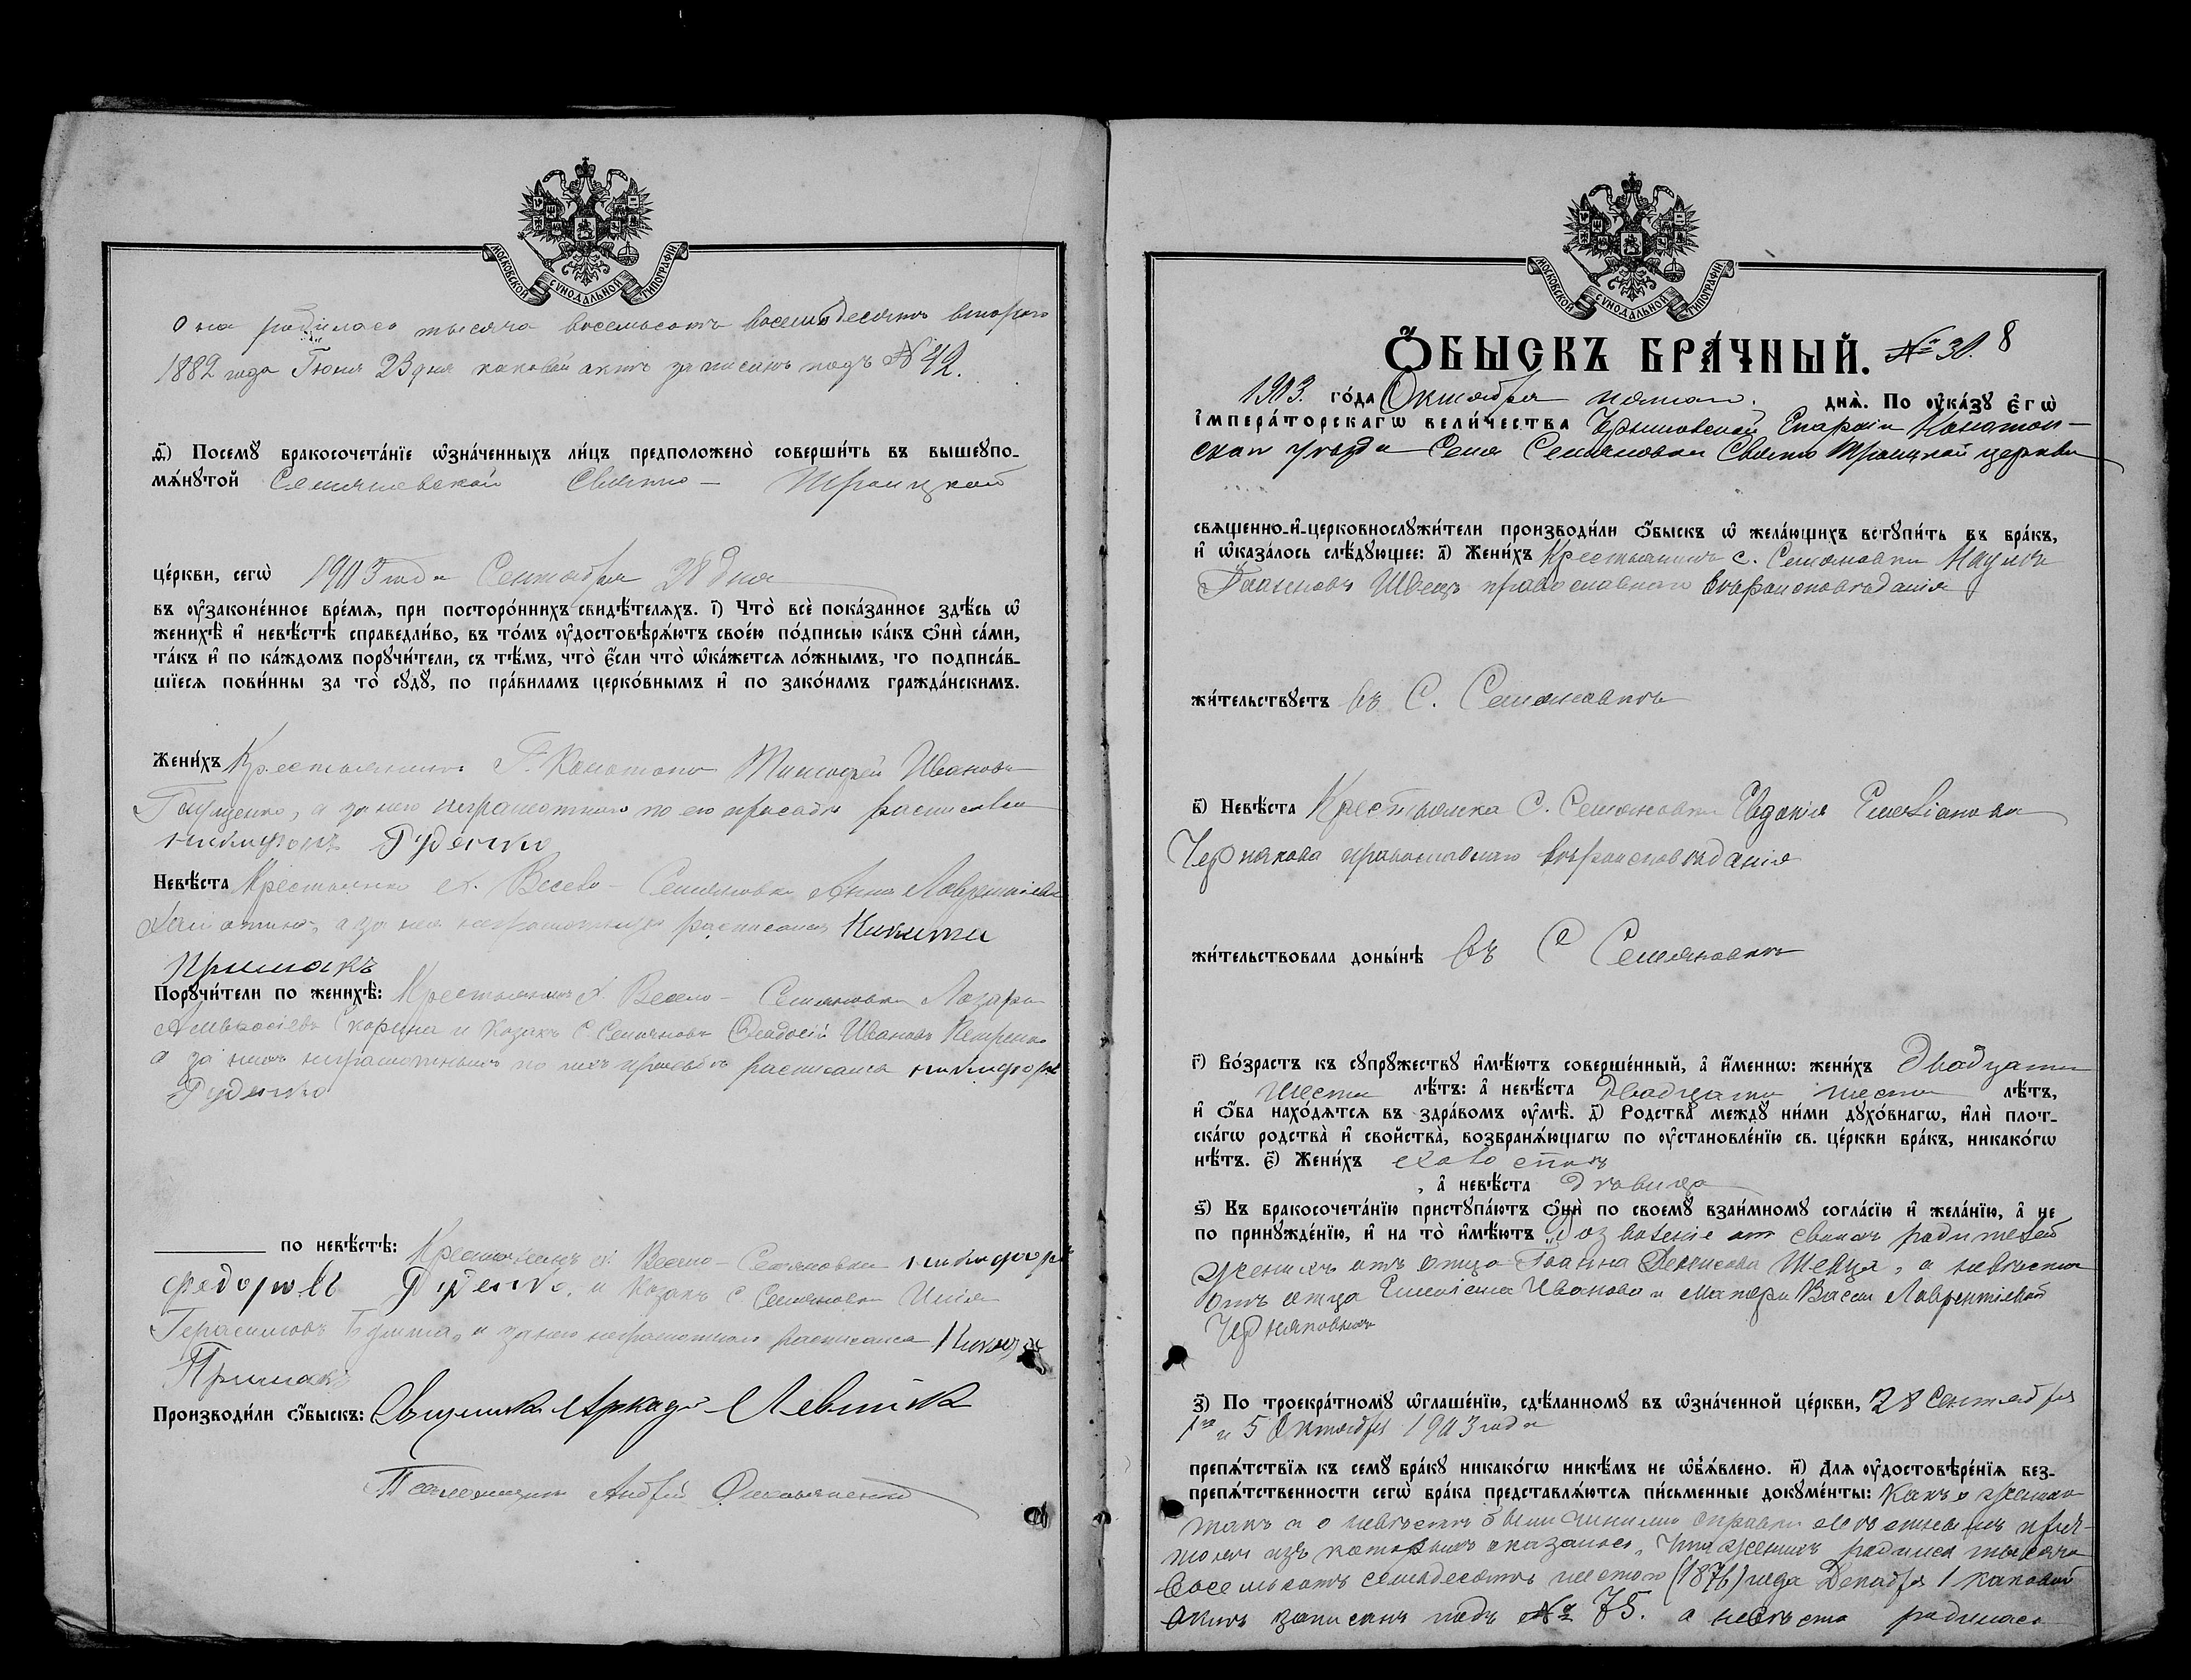 МОСКОВСКОЙ СѴНОДАЛЬНОЙ ТИПОГРАФІИ
Она родилась тысяча восемьсотъ восемьдесятъ второго
1882 года Іюня 23 дня каковой актъ записанъ подъ № 42.
ѳ҃) Посемꙋ бракосочета́нїе ѡ҆зна́ченныхъ ли́цъ предположено̀ соверши́ть въ вышеꙋпо-
мѧ́нꙋтой Семяновской Свято- Троицкой
це́ркви, сегѡ̀ 1903 года Сентября 28 дня
въ ᲂу҆законе́нное вре́мѧ, при посторо́ннихъ свидѣ́телѧхъ. і҃) Что̀ всѐ пока́занное здѣ́сь ѡ҆
женихѣ̀ и҆ невѣ́стѣ справедли́во, въ то́мъ ᲂу҆достовѣрѧ́ютъ свое́ю по́дписью ка́къ ѻ҆нѝ са́ми,
та́къ и҆ по ка́ждомъ порꙋчи́тели, съ тѣ́мъ, что̀ є҆́сли что̀ ѡ҆ка́жетсѧ ло́жнымъ, то подписа́в-
шїесѧ пови́нны за то̀ сꙋдꙋ̀, по пра́виламъ церко́внымъ и҆ по зако́намъ гражда́нскимъ.
Жени́хъ Крестьянинъ Г. Конотопа Тимофей Ивановъ
а за него неграмотного по его просьбѣ расписался
Никифоръ Руденко
Невѣ́ста Крестьянка х. Весело- Семяновки Анна Лаврентіева
а за нея неграмотную расписался Никита
Примакъ
Порꙋчи́тели по женихѣ̀: Крестьянинъ х. Весело- Семяновки Лазарь
Амвросіевъ Скорина и Козакъ с Семяновки Феодосій Ивановъ Петренко
а за нихъ неграмотныхъ по ихъ просьбѣ расписался Никифоръ
Руденко
по невѣ́стѣ: Крестьянинъ х. Весело- Семяновки Никифоръ
Федоровъ Руденко, и Козакъ с Семяновки
Герасимовъ а за него неграмотного расписался Никита
Примакъ
Производи́ли ѻ҆́быскъ: Священникъ Аркадій Левицкій
Псаломщикъ Андрей
МОСКОВСКОЙ СѴНОДАЛЬНОЙ ТИПОГРАФІИ
Ѻ҆́БЫСКЪ БРА́ЧНЫЙ. № 30. 8
1903. го́да Октября пятаго. днѧ̀. По ᲂу҆ка́зꙋ є҆гѡ̀
і҆мпера́торскагѡ вели́чества Черниговской Епархіи Конотоп-
скаго уѣзда Села Семяновки Свято Троицкой церкви
свѧщенно-и҆-церковнослꙋжи́тели производи́ли ѻ҆́быскъ ѡ҆ жела́ющихъ встꙋпи́ть въ бра́къ,
и҆ ѡ҆каза́лось слѣ́дꙋющее: а҃) Жени́хъ Крестьянинъ с. Семяновки Наумъ
Іоанновъ Швецъ православнаго вѣроисповѣданія
жи́тельствꙋетъ въ С. Семяновкѣ
в҃) Невѣ́ста Крестьянка С. Семяновки Евдокія Емеліанова
Чернякова православнаго вѣроисповѣданія
жи́тельствовала доны́нѣ въ С Семяновкѣ
г҃) Во́зрастъ къ сꙋпрꙋ́жествꙋ и҆мѣ́ютъ соверше́нный, а҆ и҆́меннѡ: жени́хъ двадцати
шести лѣ́тъ: а҆ невѣ́ста двадцати шести лѣ́тъ,
и҆ ѻ҆́ба нахо́дѧтсѧ въ здра́вомъ ᲂу҆мѣ̀. д҃) Родства̀ междꙋ̀ ни́ми дꙋхо́внагѡ, и҆лѝ плот-
ска́гѡ родства̀ и҆ свойства̀, возбранѧ́ющагѡ по ᲂу҆становле́нїю св. це́ркви бра́къ, никако́гѡ
нѣ́тъ. є҃) Жени́хъ холостъ
, а҆ невѣ́ста дѣвица
ѕ҃) Къ бракосочета́нїю пристꙋпа́ютъ ѻ҆нѝ по своемꙋ̀ взаи́мномꙋ согла́сїю и҆ жела́нїю, а҆ не
по принꙋжде́нїю, и҆ на то̀ и҆мѣ́ютъ дозволеніе отъ своихъ родителей
женихъ отъ отца Іоанна Денисова Швеца, а невѣста
отъ отца Емеліана Иванова и матери Васы Лаврентіевой
Черняковыхъ
з҃) По троекра́тномꙋ ѡ҆глаше́нїю, сдѣ́ланномꙋ въ ѡ҆зна́ченной це́ркви, 28 Сентября
1го и 5 Октября 1903 года
препѧ́тствїѧ къ семꙋ̀ бра́кꙋ никако́гѡ никѣ́мъ не ѡ҆б̾ѧ́влено. и҃) Длѧ̀ ᲂу҆достовѣре́нїѧ без-
препѧ́тственности сегѡ̀ бра́ка представлѧ́ютсѧ пи́сьменные докꙋме́нты: Какъ о женихѣ
такъ и о невѣстѣ были справки
изъ которыхъ оказалось, что женихъ родился тысяча
восемьсотъ семьдесятъ шестого (1876) года Декабря 1 каковой
актъ записанъ подъ № 75. а невѣста родилась